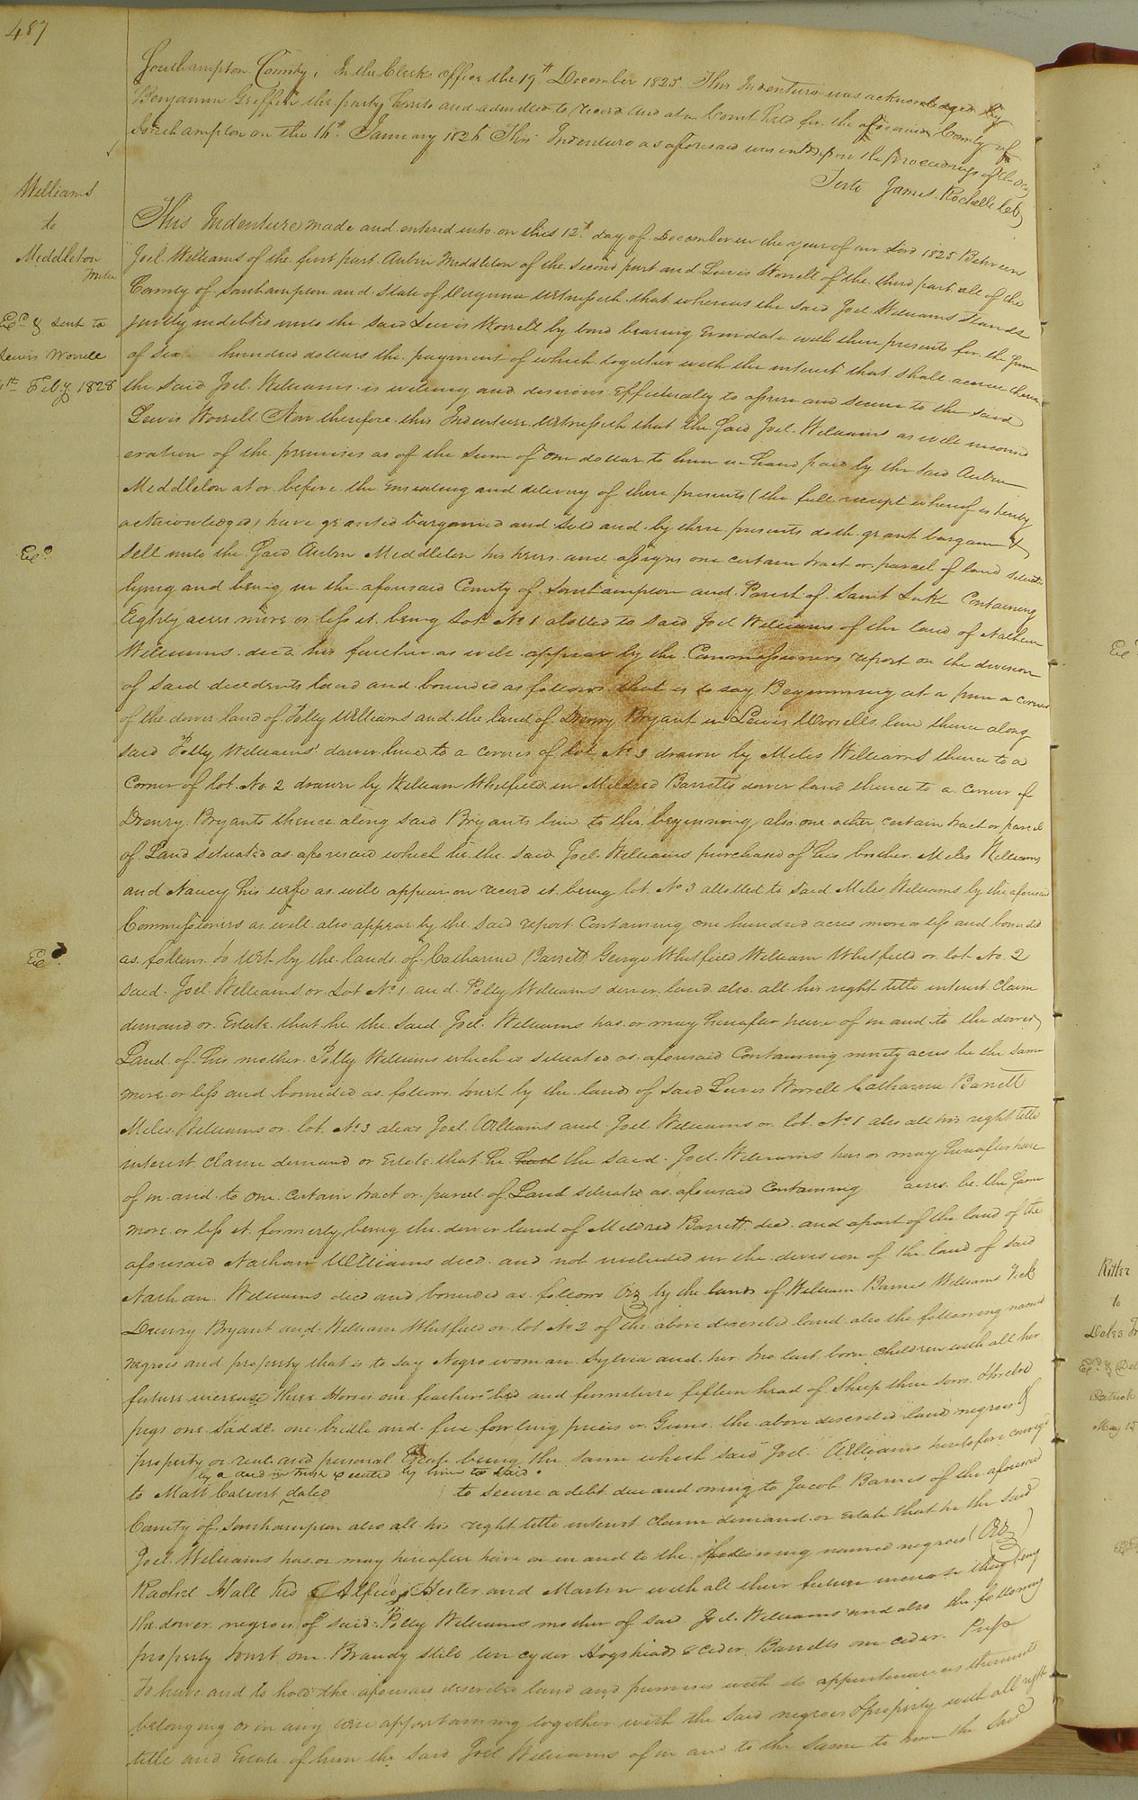 487
Southampton County, In the Clerks office the 19th December 1825 This Indenture was acknowledged by
Benjamin Griffin the party hereto and admitted to record and at a Court held for the aforesaid County of
Southampton on the 16th January 1826 This Indenture as aforesaid was entd upon the proceedings of the day
Teste James Rochelle
Williams
to
Middleton
This Indenture made and entered into on this 12th day of December in the year of our Lord 1825 Between
Joel Williams of the first part Middleton of the second part and Lewis Worrell of the third part all of the
County of Southampton and State of Virginia Witnesseth that whereas the said Joel Williams stands
Exd & sent to
Lewis Worrell
Feby 1828
justly indebted unto the said Lewis Worrell by bond bearing even date with these presents for the sum
of six hundred dollars the payment of which together with the interest that shall accrue thereon
the said Joel Williams is willing and desirous effectually to assure and secure to the said
Lewis Worrell Now therefore this Indenture Witnesseth that the said Joel Williams as well in consid
eration of the premises as of the sum of one dollar to him in hand paid by the said
Middleton at or before the ensealing and delivery of these presents (the full receipt whereof is hereby
acknowledged) have granted bargained and sold and by these presents doth grant bargain &
Exd
sell unto the said Middleton his heirs and assigns one certain tract or parcel of land situate
lying and being in the aforesaid County of Southampton and Parish of Saint Luke Containing
Eighty acres more or less it being Lot No 1 alotted to said Joel Williams of the land of Nathan
Williams decd his father as will appear by the Commissioners report on the division
of said decedents land and bounded as follows that is to say Beginning at a pine a corner
of the dower land of Polly Williams and the land of Drewry Bryant in Lewis Worrells line thence along
said Polly Williams' dower line to a corner of lot No 3 drawn by Miles Williams thence to a
corner of lot No 2 drawn by William Whitfield in Mildred Barretts dower land thence to a corner of
Drewry Bryants thence along said Bryants line to the beginning, also one other certain tract or parcel
of Land situated as aforesaid which he the said Joel Williams purchased of his brother Miles Williams
and Nancy his wife as will appear on record it being lot No 3 allotted to said Miles Williams by the aforesaid
Commissioners as will also appear by the said report Containing one hundred acres more or less and bounded
Exd
as follows to Wit by the lands of Catharine Barrett George Whitfield William Whitfield or lot No. 2
said Joel Williams or Lot No 1 and Polly Williams dower land also all his right title interest claim
demand or Estate that he the said Joel Williams has or may hereafter have of in and to the dower
Land of his mother Polly Williams which is situated as aforesaid Containing ninety acres be the same
more or less and bounded as follows towit by the lands of said Lewis Worrell Catharine Barrett
Miles Williams or lot No 3 alias Joel Williams and Joel Williams or lot No 1 also all his right title
interest claim demand or Estate that he the said Joel Williams has or may hereafter have
of in and to one certain tract or parcel of Land situate as aforesaid containing acres be the same
more or less it formerly being the dower land of Mildred Barrett decd and apart of the land of the
aforesaid Nathan Williams decd and not included in the division of the land of said
Nathan Williams decd and bounded as follows by the lands of William Barnes Williams
Drewry Bryant and William Whitfield or lot No 2 of the above described land also the following named
negroes and property that is to say Negro woman Sylvia and her two last born children with all her
future increase three Horses one feather bed and furniture fifteen head of Sheep three sows
pigs one Saddle one bridle and five fowling pieces or Guns the above described land negroes &
property or real and personal Estate being the same which said Joel Williams heretofore conveyed
by a deed in trust executed by him to said
to Matt Calvert dated to secure a debt due and owing to Jacob Barnes of the aforesaid
County of Southampton also all his right title interest claim demand or estate that he the said
Joel Williams has or may hereafter have in and to the following named negroes
Rachel Hall Alfred Hester and Martin with all their future increase they being
the dower negroes of said Polly Williams mother of said Joel Williams and also the following
property towit one Brandy still ten cyder Hogsheads & cider Barrells one cider Press
To have and to hold the aforesaid described land and premises with its appurtenances thereunto
belonging or in any wise appertaining together with the said negroes & property with all right
title and Estate of him the said Joel Williams of in and to the same to him the said
Ritter
to
May 15